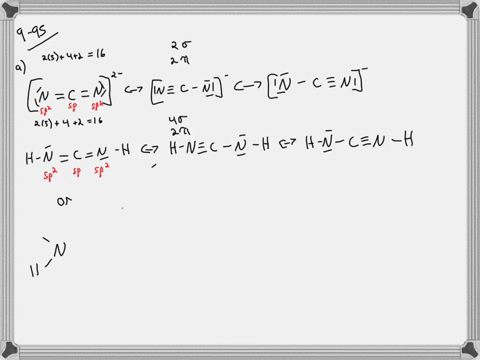 9-95
2(5)+4+2=16
2σ
2π
a) [N=C=N]²⁻ ↔ [N≡C-N]⁻ ↔ [N-C≡N]⁻
sp² sp sp²
2(5)+4+2=16
4σ
2π
H-N=C=N-H ↔ H-N≡C-N-H ↔ H-N-C≡N-H
sp² sp sp²
or
N
H